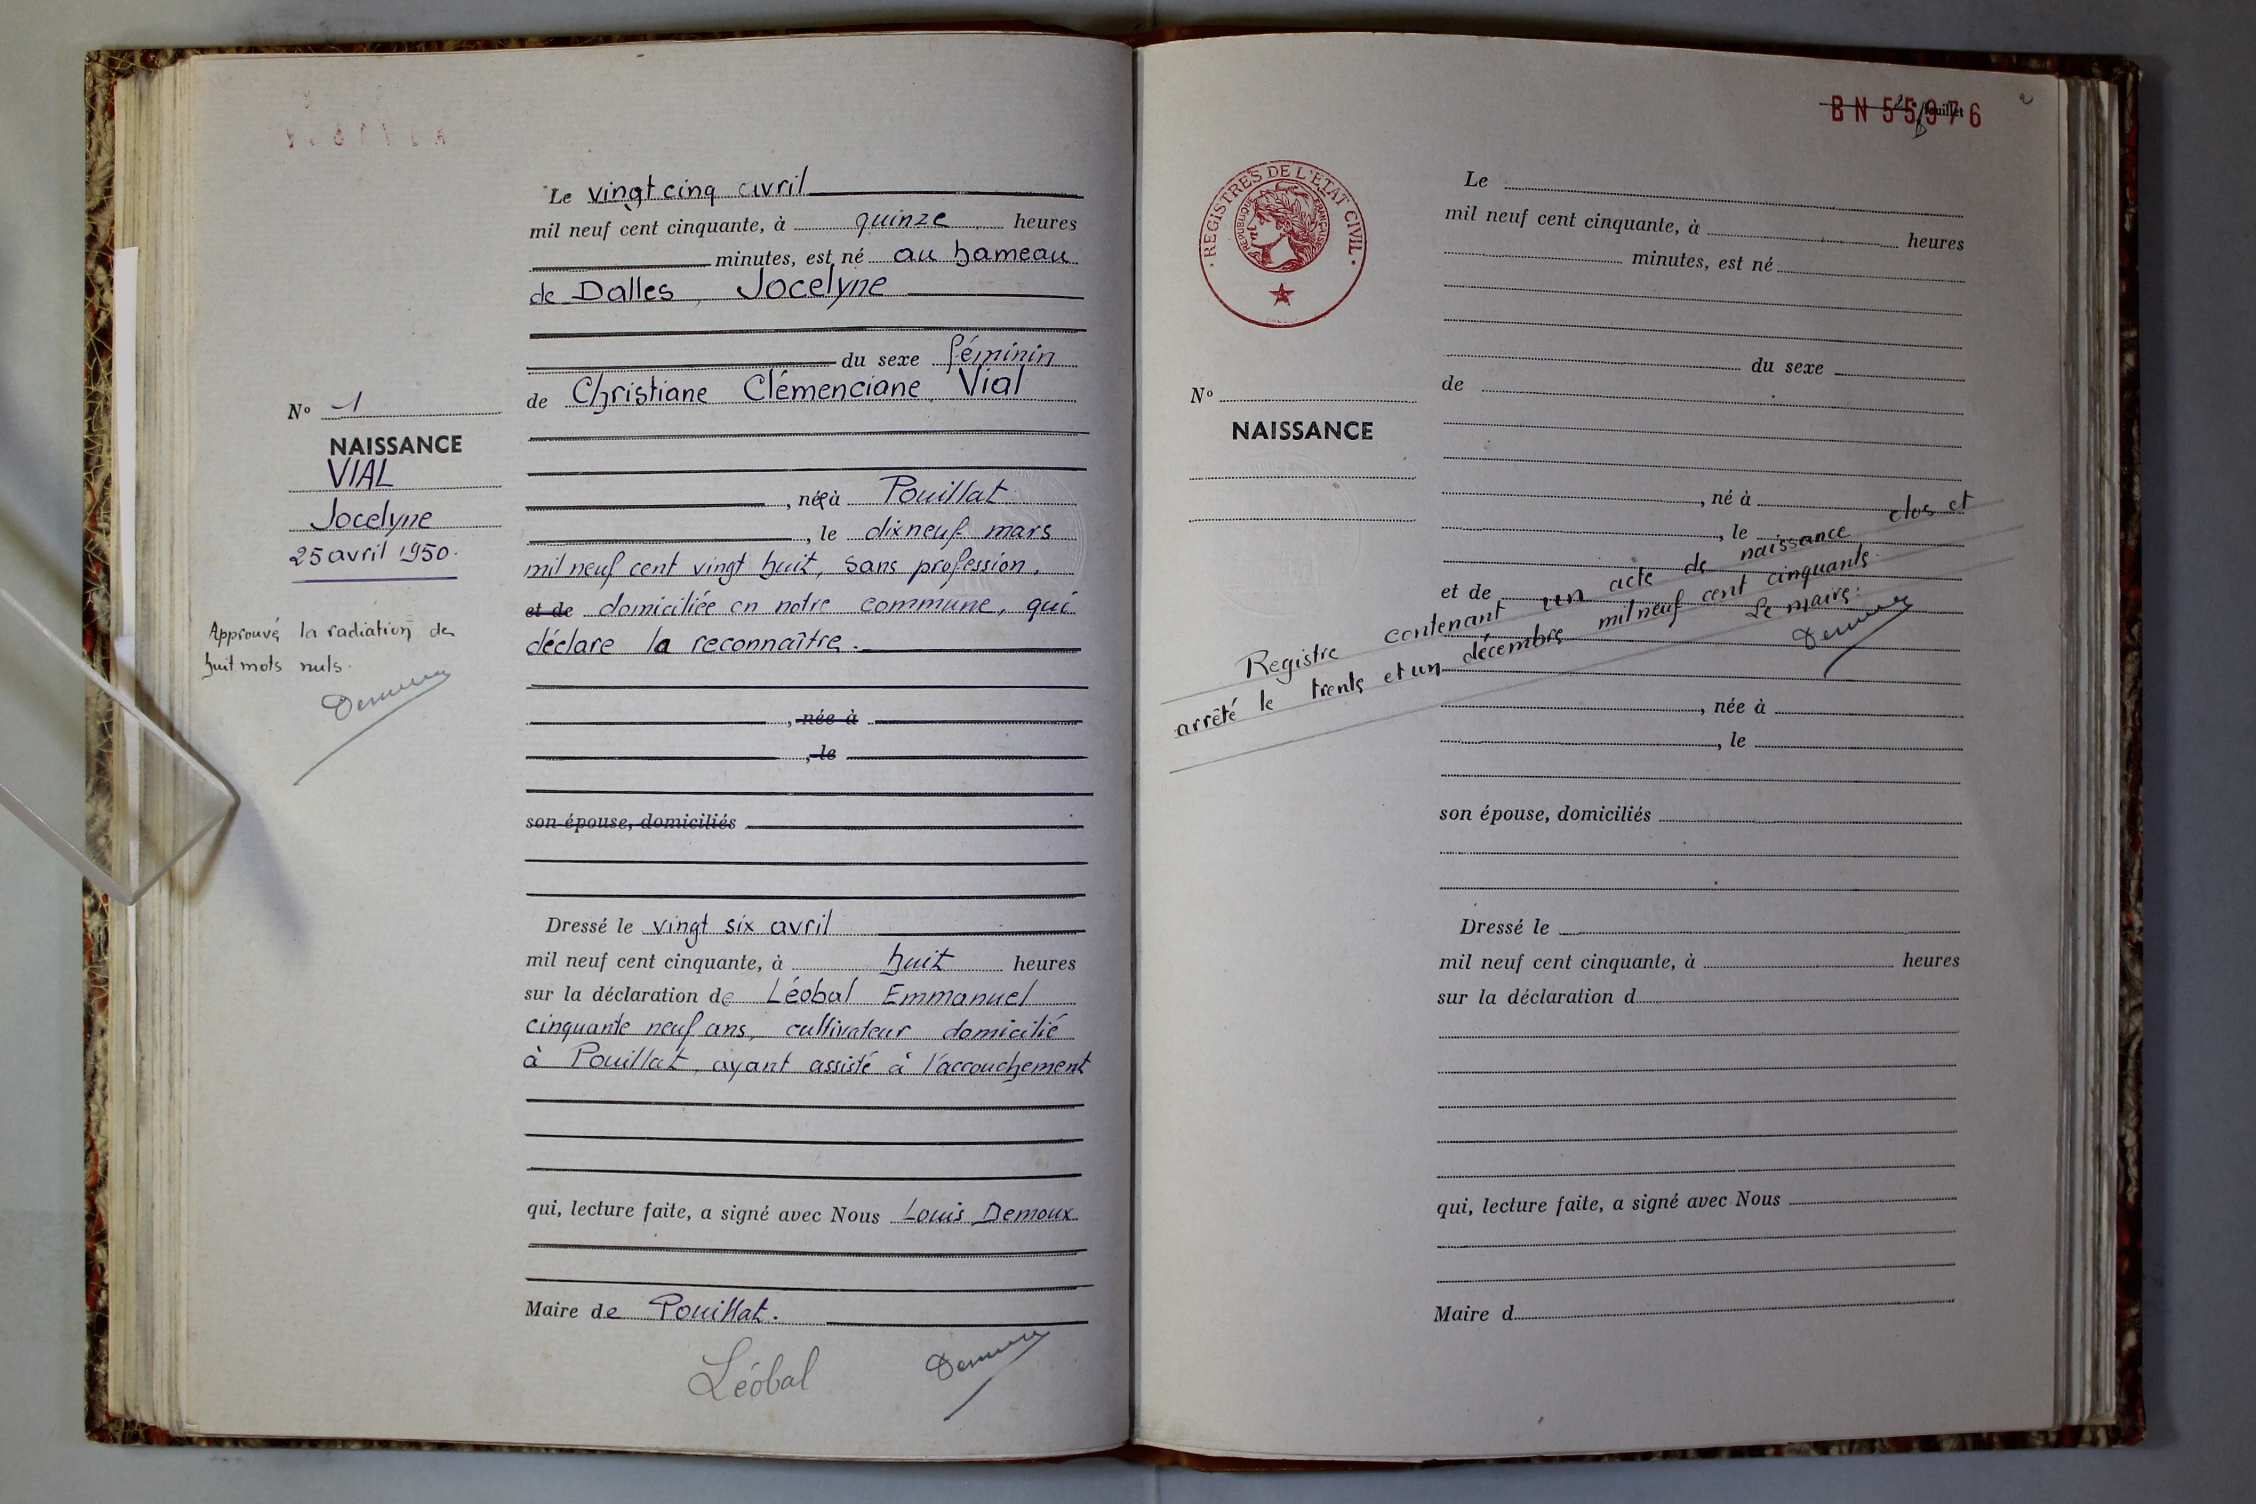 N° 1
NAISSANCE
VIAL
Jocelyne
25 avril 1950.
Approuvé la radiation de
huit mots nuls.
Le vingt cinq avril
mil neuf cent cinquante, à quinze heures
minutes, est né au hameau
de Dalles, Jocelyne
du sexe féminin
de Christiane Clémenciane Vial
, née à Pouillat
, le dix neuf mars
mil neuf cent vingt huit, sans profession,
et de domiciliée en notre commune, qui
déclare la reconnaître.
, née à
, le
son épouse, domiciliés
Dressé le vingt six avril
mil neuf cent cinquante, à huit heures
sur la déclaration de Léobal Emmanuel
cinquante neuf ans, cultivateur domicilié
à Pouillat, ayant assisté à l'accouchement
qui, lecture faite, a signé avec Nous Louis Demoux
Maire de Pouillat.
Léobal
BN 55976
feuillet
REGISTRES DE L'ÉTAT CIVIL
RÉPUBLIQUE FRANÇAISE
N°
NAISSANCE
Le
mil neuf cent cinquante, à heures
minutes, est né
du sexe
de
, né à
, le
et de
Registre contenant un acte de naissance clos et
arrêté le trente et un décembre mil neuf cent cinquante.
Le maire:
, née à
, le
son épouse, domiciliés
Dressé le
mil neuf cent cinquante, à heures
sur la déclaration d
qui, lecture faite, a signé avec Nous
Maire d